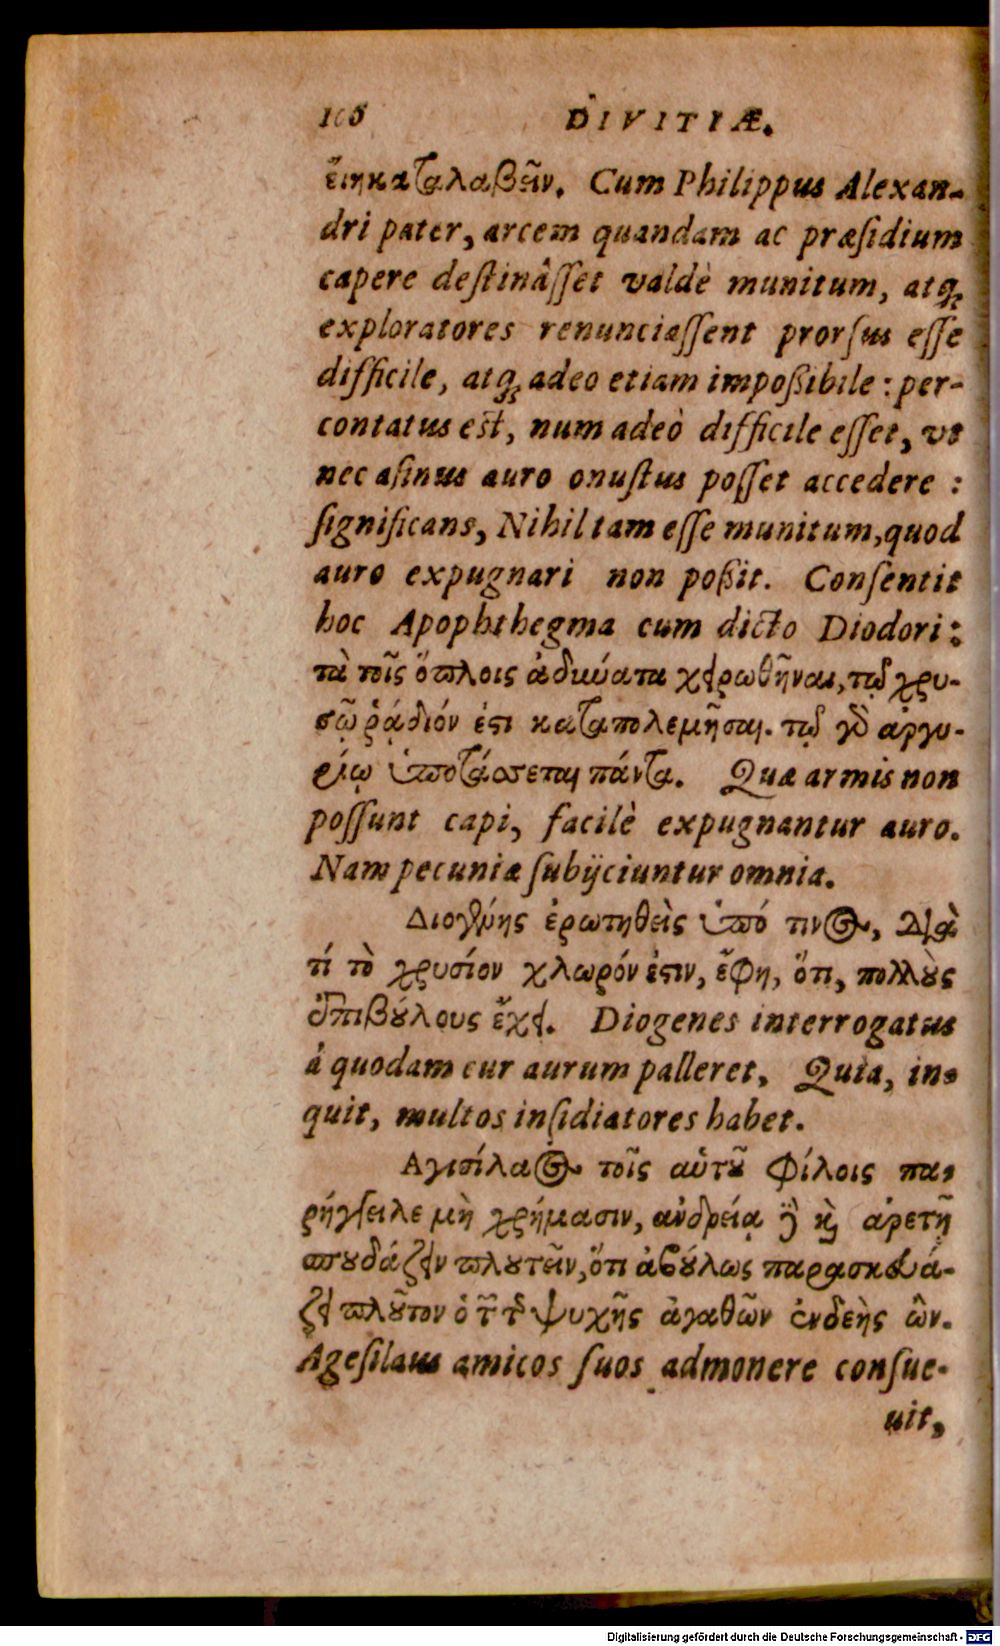 106 DIVITIÆ.
εἴη καταλαβεῖν. Cum Philippus Alexan-
dri pater, arcem quandam ac præſidium
capere deſtinâſſet valdè munitum, atq;
exploratores renunciaſſent prorſus eſſe
difficile, atq; adeo etiam impoßibile: per-
contatus est, num adeò difficile eſſet, vt
nec aſinus auro onuſtus poſſet accedere:
ſignificans, Nihil tam eſſe munitum, quod
auro expugnari non poßit. Conſentit
hoc Apophthegma cum dicto Diodori:
τὰ τοῖς ὅπλοις ἀδύνατα χειρωθῆναι, τῷ χρυ-
σῷ ῥᾴδιόν ἐϛι καταπολεμῆσαι. τῷ γὸ ἀργυ-
ρίῳ ὑποτάσσεται πάντα. Quæ armis non
poſſunt capi, facilè expugnantur auro.
Nam pecuniæ ſubijciuntur omnia.
Διογένης ἐρωτηθεὶς ὑπό τινος, Διὰ
τί τὸ χρυσίον χλωρόν ἐϛιν, ἔφη, ὅτι, πολλοὺς
ἐπιβούλους ἔχει. Diogenes interrogatus
à quodam cur aurum palleret, Quia, in-
quit, multos inſidiatores habet.
Αγισίλαος τοῖς αὑτοῦ φίλοις πα-
ρήγγειλε μὴ χρήμασιν, ἀνδρείᾳ δὲ καὶ ἀρετῇ
σπουδάζειν πλουτεῖν, ὅτι ἀβούλως παρασκευά-
ζει πλοῦτον ὁ τῶν τῆς ψυχῆς ἀγαθῶν ἐνδεὴς ὢν.
Ageſilaus amicos ſuos admonere conſue-
uit,
Digitalisierung gefördert durch die Deutsche Forschungsgemeinschaft - DFG